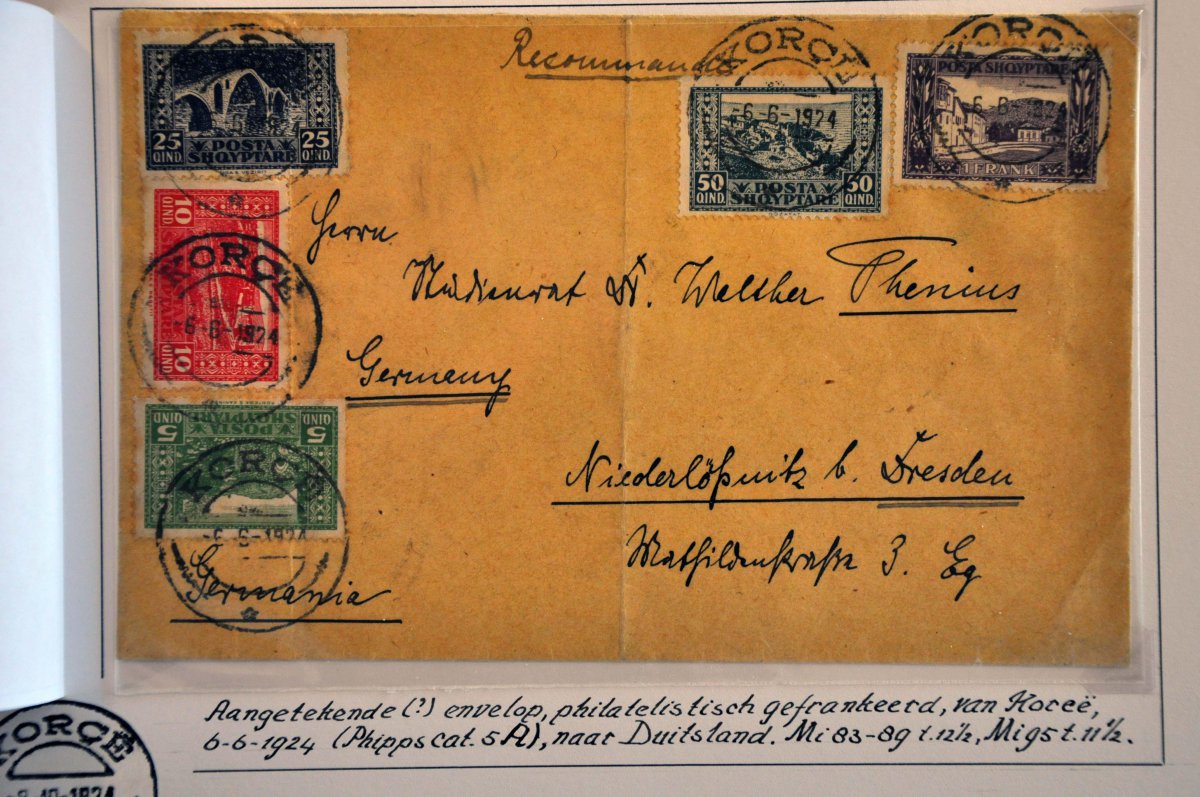 KORÇE
Recommandé
KORÇE
KORÇE
POSTA SHQYPTARE
-6-6-1924
6-6
25 25
QIND. POSTA QIND.
SHQYPTARE
50 50
QIND. POSTA QIND.
SHQYPTARE
1 FRANK
10
QIND
KORÇE
-6-6-1924
10
QIND
Herrn
Studienrat Dr. Walther Thenius
Germany
5 POSTA 5
QIND SHQYPTARE QIND
KORÇE
-6-6-1924
Niederlößnitz b. Dresden
Mathildenstraße 3. Eg
Germania
Aangetekende (?) envelop, philatelistisch gefrankeerd, van Korcë,
6-6-1924 (Phipps cat. 5A), naar Duitsland. Mi 83-89 t. 12½, Mi 95 t. 11½.
KORÇE
-8-10-1924